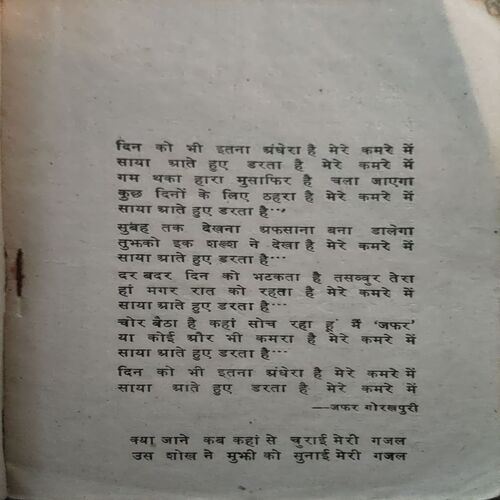 दिन को भी इतना अंधेरा है मेरे कमरे में
साया आते हुए डरता है मेरे कमरे में
गम थका हारा मुसाफिर है चला जाएगा
कुछ दिनों के लिए ठहरा है मेरे कमरे में
साया आते हुए डरता है···
सुबह तक देखना अफसाना बना डालेगा
तुझको इक शख्श ने देखा है मेरे कमरे में
साया आते हुए डरता है···
दर बदर दिन को भटकता है तसव्वुर तेरा
हां मगर रात को रहता है मेरे कमरे में
साया आते हुए डरता है···
चोर बैठा है कहां सोच रहा हूं मैं 'जफर'
या कोई और भी कमरा है मेरे कमरे में
साया आते हुए डरता है···
दिन को भी इतना अंधेरा है मेरे कमरे में
साया आते हुए डरता है मेरे कमरे में
—जफर गोरखपुरी
क्या जाने कब कहां से चुराई मेरी गजल
उस शोख ने मुझी को सुनाई मेरी गजल